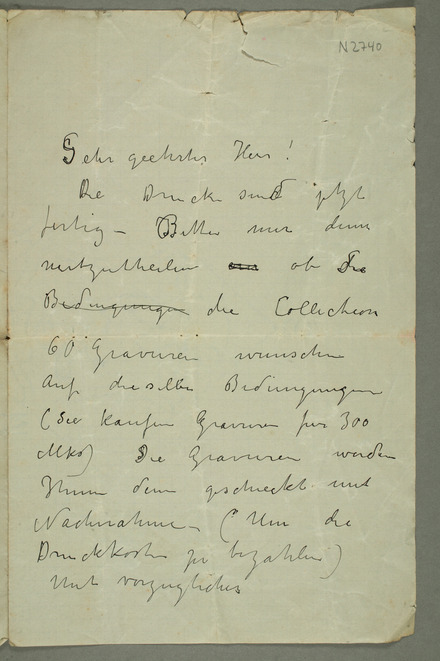 N2740
Sehr geehrter Herr!
Die Drucke sind jetzt
fertig – Bitte mir dann
mitzutheilen ob Sie
Bedingungen die Collection
60 Gravuren wunschen
Auf dieselben Bedingungen
(Sie kaufen Gravuren fur 300
Mks) Die Gravuren werden
Ihnen dann geschickt mit
Nachnahme – (Um die
Druckkosten zu bezahlen)
Mit vorzuglicher